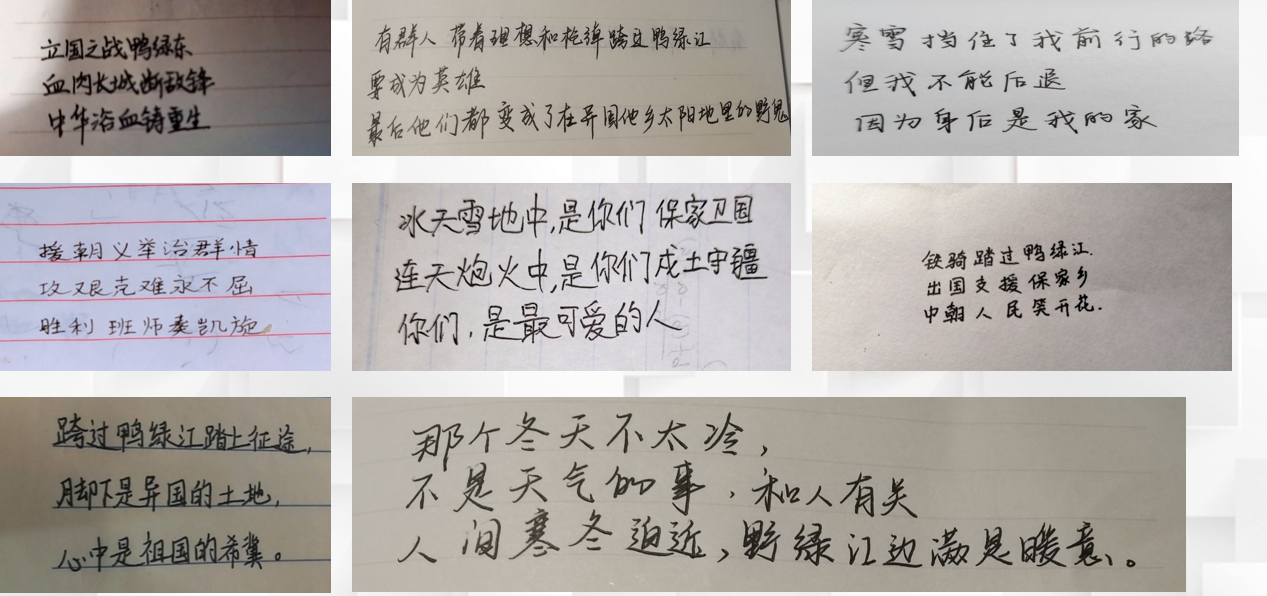 立国之战鸭绿东
血肉长城断敌锋
中华浴血铸重生
有群人 带着理想和枪弹跨过鸭绿江
要成为英雄
最后他们都变成了在异国他乡太阳地里的野鬼
寒雪挡住了我前行的路
但我不能后退
因为身后是我的家
援朝义举治群情
攻艰克难永不屈
胜利班师奏凯旋
冰天雪地中,是你们保家卫国
连天炮火中,是你们戍土守疆
你们,是最可爱的人
铁骑踏过鸭绿江.
出国支援保家乡
中朝人民笑开花.
跨过鸭绿江踏上征途,
脚下是异国的土地,
心中是祖国的希冀。
那个冬天不太冷,
不是天气的事,和人有关
人间寒冬迫近,野绿江边满是暖意。